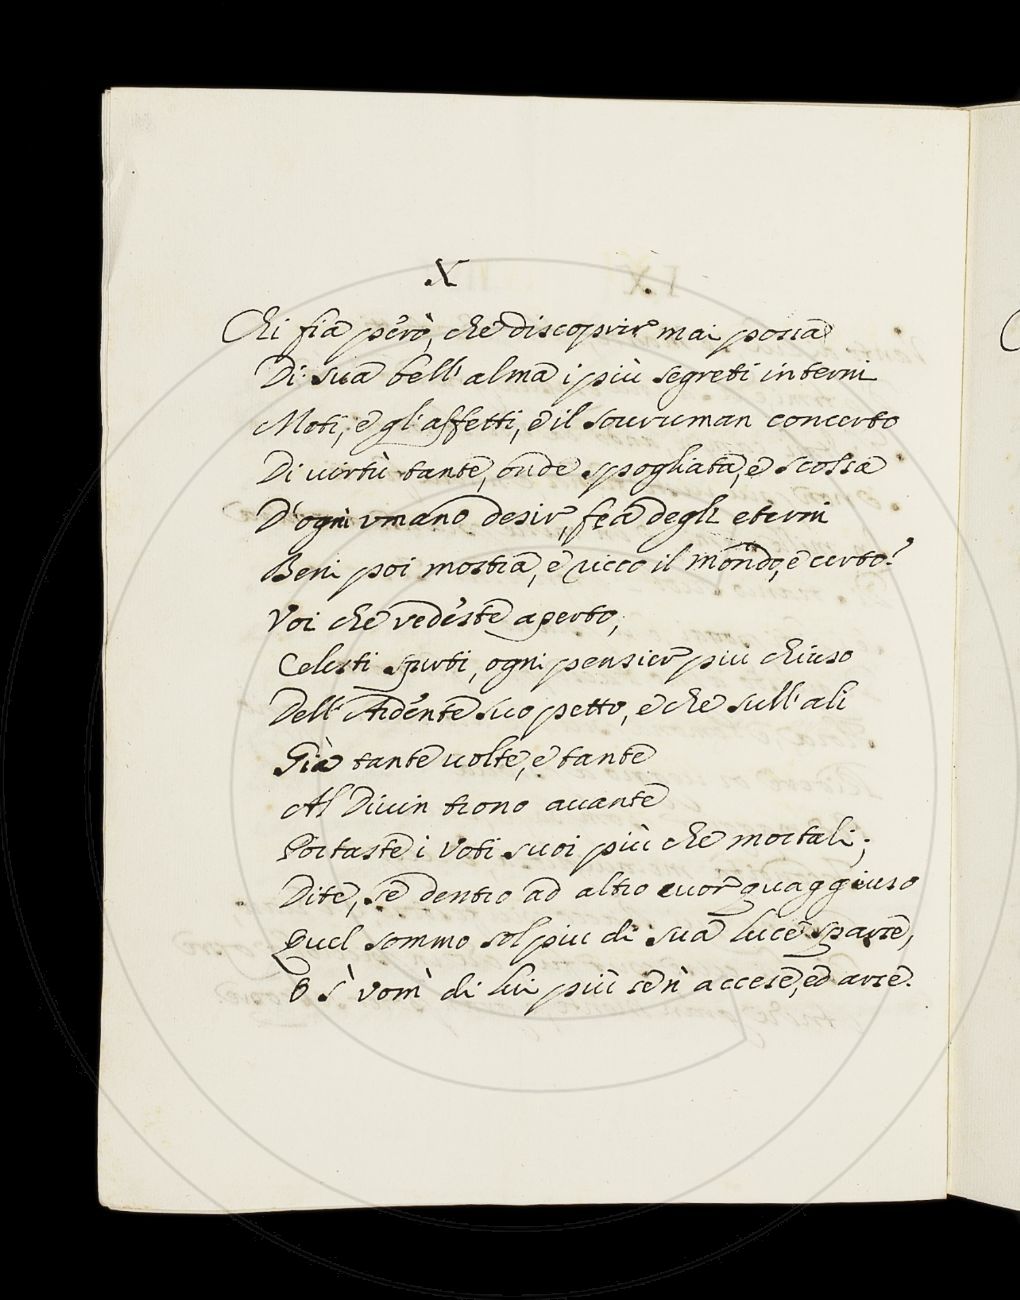 X
Chi fia però, che discoprir mai possa
Di sua bell'alma i più segreti interni
Moti, e gl'affetti, e il sovruman concerto
Di virtù tante, onde spogliata, e scossa
D'ogni umano desir, fea degli eterni
Beni poi mostra, e ricco il mondo, e certo?
Voi che vedeste aperto,
Celesti spirti, ogni pensier più chiuso
Dell'Ardente suo petto, e che sull'ali
Già tante volte, e tante
Al Divin trono avante
Portaste i Voti suoi più che mortali;
Dite, se dentro ad altro cuor quaggiuso
Quel sommo sol più di sua luce sparse,
E s'uom di lui più se n'accese, ed arse.